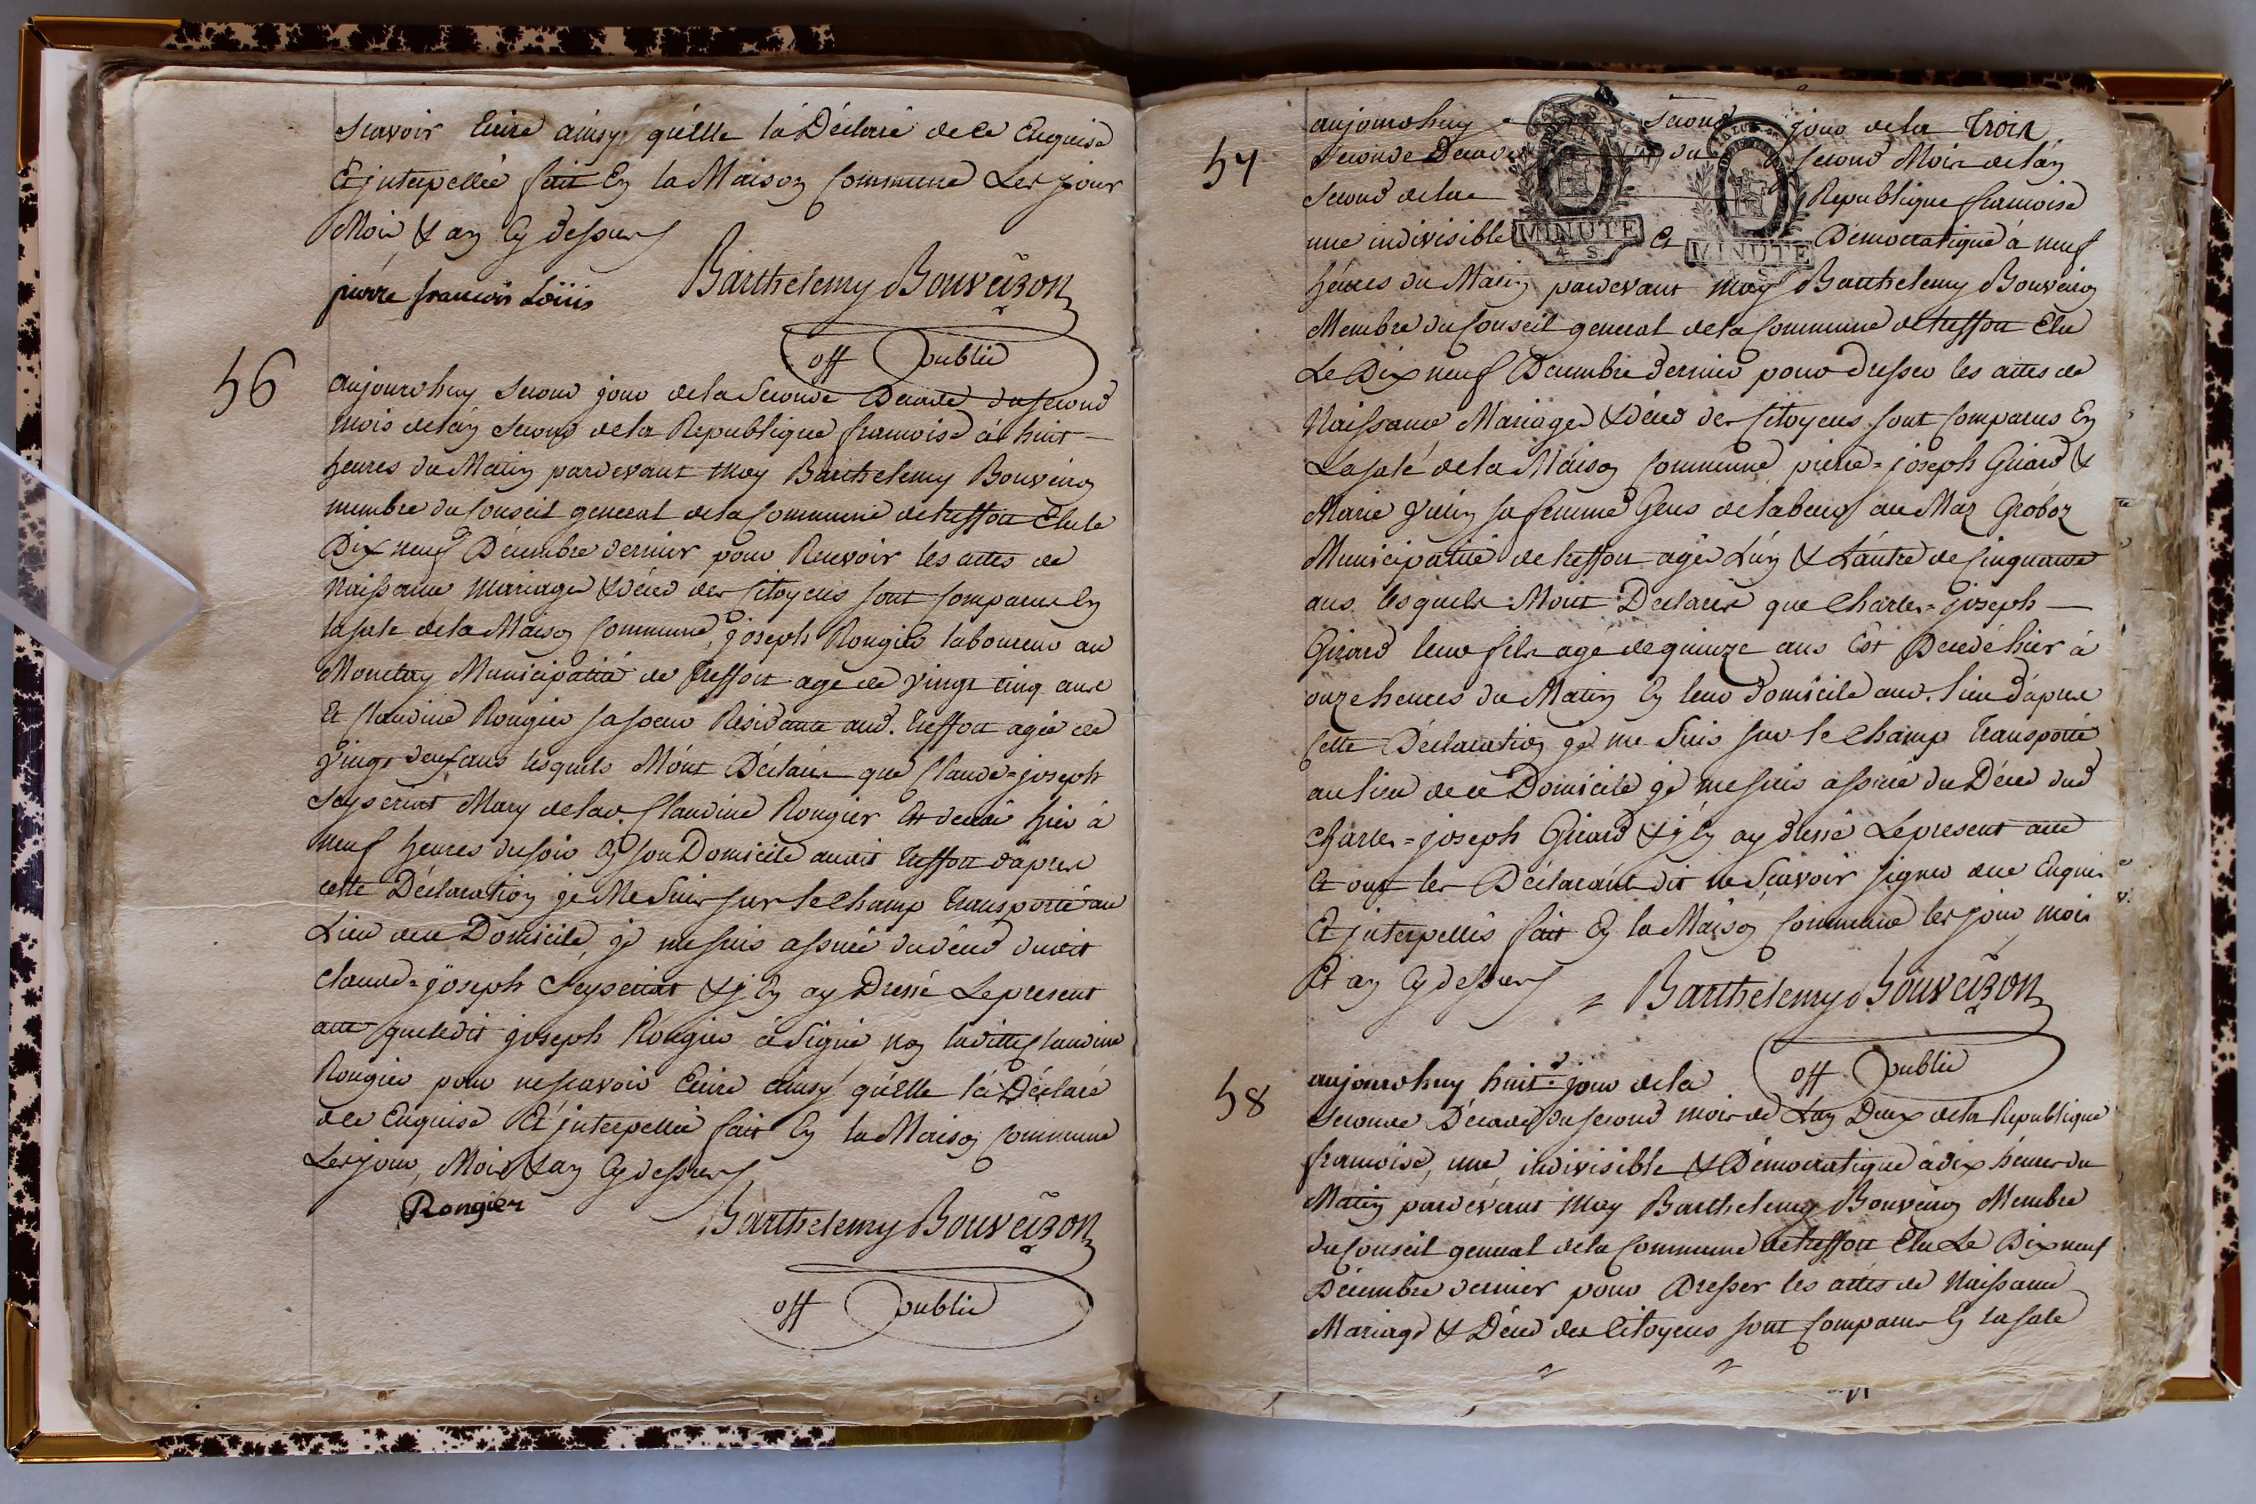 scavoir Ecrire ainsy qu'Elle la Déclaré de ce Enquise
Et interpellée fait En la Maison Commune Les jour
Mois & an Cy dessus
pierre francois Loüis Barthelemy Bouveiron
off public
56
aujourdhuy second jour de la seconde Decade du second
mois de l'an second de la Republique francoise à huit
heures du Matin pardevant Moy Barthelemy Bouveiron
membre du Conseil general de la Commune de treffort Elu le
Dix neuf Decembre dernier pour Recevoir les actes de
Naissance mariage & décé des Citoyens sont Comparus En
la sale de la Maison Commune, joseph Rongier laboureur au
Municipalité de treffort agé de vingt cinq ans
Et Claudine Rongier sa soeur Residante aud. treffort agée de
vingt deux ans lesquels M'ont Déclarés que Claude=joseph
Seyseriat Mary de lad. Claudine Rongier Est decedé hier à
neuf heures du soir En son Domicile audit treffort d'apres
cette Déclaration je Me suis sur le Champ Transporté au
Lieu de ce Domicile, je me suis assuré du décé dudit
Claude=joseph Seyseriat & j'En ay Dressé Le present
acte que ledit joseph Rongier à Signé non laditte Claudine
Rongier pour ne scavoir Ecrire ainsy qu'Elle la Déclaré
de ce Enquise Et interpellée fait En la Maison Commune
Les jour, Mois & an Cy dessus
Rongier Barthelemy Bouveiron
off public
57
aujourdhuy second jour de la Trois
Seconde Decade du second Mois de l'an
second de la Republique francoise
une indivisible Et Démocratique à neuf
MINUTE
4 S
MINUTE
S
héures du Matin pardevant moy Barthelemy Bouveiron
Membre du Conseil general de la Commune de treffort Elu
Le Dix neuf Decembre dernier pour dresser les actes de
Naissance Mariage & décé des Citoyens sont Comparus En
La sale de la Maison Commune pierre=joseph Girard &
Marie sa femme Gens de labeur au Mas Groboz
Municipalité de treffort agé L'un & L'autre de Cinquante
ans lesquels M'ont Déclarés que Charles=joseph
Girard leur fils agé de quinze ans Est Decedé hier à
onze heures du Matin En leur domicile aud. lieu d'apres
Cette Déclaration je me suis sur le Champ Transporté
au lieu de ce Domicile je me suis assuré du Décé dud
Charles=joseph Girard & j'En ay dressé Le present acte
Et ont les Déclarant dit ne Scavoir signer de ce Enquis
Et interpellés fait En la Maison Commune les jour, mois
Et an Cy dessus = Barthelemy Bouveiron
off public
58
aujourdhuy huit.e jour de la
Seconde Décade du second mois de L'an Deux de la Republique
francoise, une, indivisible & Démocratique à dix heures du
Matin pardevant Moy Barthelemy Bouveiron Membre
du Conseil general de la Commune de treffort Elu Le Dix neuf
Decembre dernier pour Dresser les actes de Naissance
Mariage & Décé des Citoyens sont Comparus En la sale